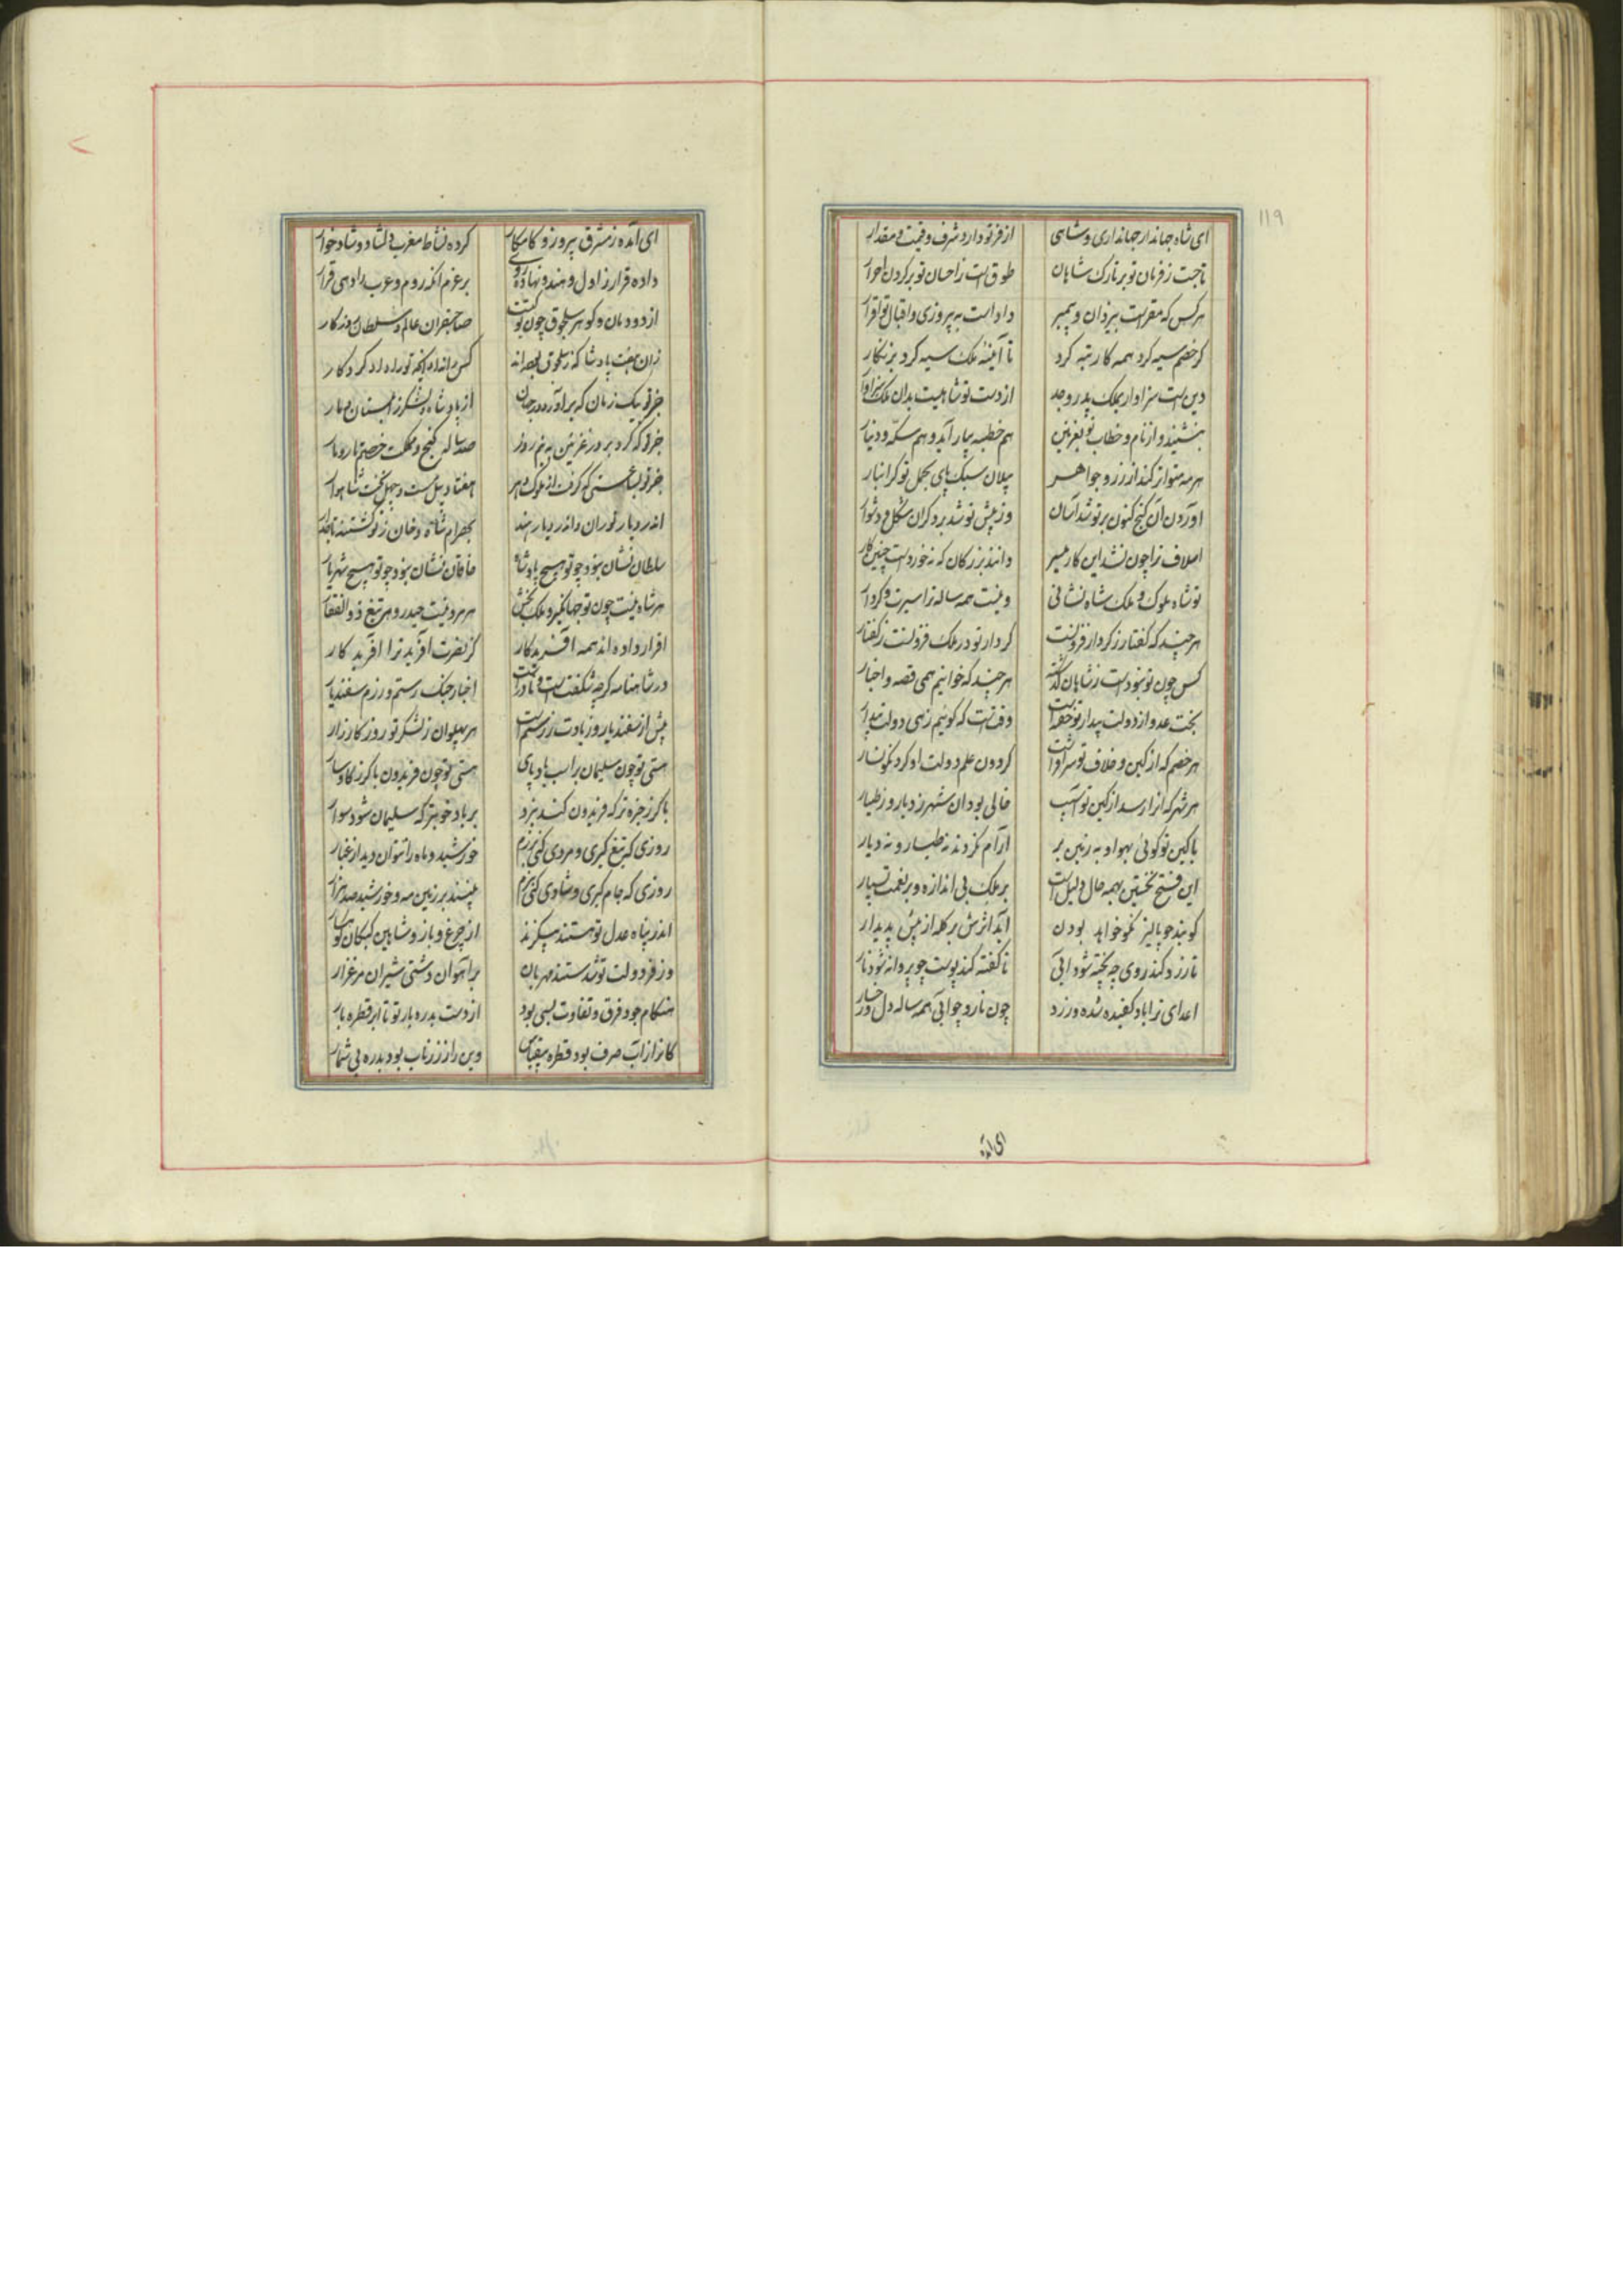 ۱۱۹
ای شاه جهاندار جهانداری و شاهی از فر تو دارد شرف و قیمت و مقدار
تاجست ز فرمان تو بر تارک شاهان طوق است ز احسان تو بر گردن احرار
هر کس که مقر است بیزدان و پیمبر داد است به پیروزی و اقبال تو اقرار
گر خصم سیه کرد همه کار تبه کرد تا آینهٔ ملک سیه کرد بزنگار
دین است سزاوار بملک پدر و جد از دست تو شاهیست بدان ملک سزاوار
بنشیند و از نام و خطاب تو بغزنین هم خطبه بیاراید و هم سکّه و دینار
هر مه متواتر کند از زر و جواهر پیلان سبک پای بحمل تو گرانبار
آوردن آن گنج کنون بر تو شد آسان وز پیش تو شد بر دگران مشکل و دشوار
اسلاف ترا چون نشد این کار میسر دانند بزرگان که نه خورد است چنین کار
تو شاه ملوک و ملک شاه نشانی و ینست همه ساله ترا سیرت و کردار
هرچند که گفتار ز کردار فزونست کردار تو در ملک فزونست ز گفتار
کس چون تو نبود است ز شاهان گذشته هرچند که خوانیم همی قصه و اخبار
بخت عدو از دولت بیدار تو خفته است وقت است که گوئیم زهی دولت بیدار
هر خصم که از کین و خلاف تو سر افراشت گردون علم دولت او کرد نگونسار
هر شهر که آنرا رسد از کین تو آسیب خالی بود آن شهر ز دیار و ز طیار
با کین تو گوئی بهوا و به زمین بر آرام نگیرند نه طیار و نه دیار
این فتح نخستین بهمه حال دلیل است بر ملک بی اندازه و بر نعمت بسیار
گویند چو پالیز نکو خواهد بودن آید اثرش بر گله از پیش پدیدار
تا زرد کند روی چه پخته شود آبی تا کفته کند پوست چو پروانه شود نار
اعدای ترا باد کفیده شده و زرد چون نار و چو آبی همه ساله دل و رخسار
ای آمده
ای آمده ز مشرق پیروز و کامکار کرده نشاط مغرب دلشاد و شادخوار
داده قرار زاول و هند و نهاده روی بر عزم آنکه روم و عرب را دهی قرار
از دودمان و گوهر سلجوق چون تو کیست صاحبقران عالم و سلطان روزگار
زان هفت پادشا که ز سلجوق بوده‌اند کس را نداد آنچه تو را داد کردگار
جز تو بیک زمان که برآورد در جهان از پادشاه و لشکر زابلستان دمار
جز تو که کرد بر در غزنین به نیم روز صد ساله گنج و مملکت خصم تار و مار
هفتاد پیل مست و چهل تخت شاهوار
اندر دیار توران و اندر دیار هند بهرام شاه و خان ز تو گشتند تاجدار
سلطان نشان نبود چو تو هیچ پادشاه خاقان نشان نبود چو تو هیچ شهریار
هر شاه نیست چون تو جهانگیر و ملک بخش هر مرد نیست حیدر و هر تیغ ذوالفقار
اقرار داده‌اند همه آفریدگار کز نصرت آفرید ترا آفریدگار
در شاهنامه گرچه شگفت است و نادر است اخبار جنگ رستم و رزم سفندیار
بیش از سفندیار و زیادت ز رستم است هر پهلوان ز لشکر تو روز کارزار
هستی تو چون سلیمان بر اسب بادپای هستی تو چون فریدون با گرز گاوسار
با گرز جز تو که فریدون کند نبرد بر باد جز تو که سلیمان شود سوار
روزی که تیغ گیری و مردی کنی برزم خورشید و ماه را نتوان دید از غبار
روزی که جام گیری و شادی کنی ببزم بینند بر زمین مه و خورشید صد هزار
اندر پناه عدل تو هستند بی‌گزند از چرغ و باز و شاهین کبکان کوهسار
وز فر دولت تو شدستند مهربان بر آهوان دشتی شیران مرغزار
هنگام جود فرق و تفاوت بسی بود از دست بدره بار تو تا ابر قطره بار
کانرا ز آب صرف بود قطره بی‌قیاس وین را ز زر ناب بود بدره بی‌شمار